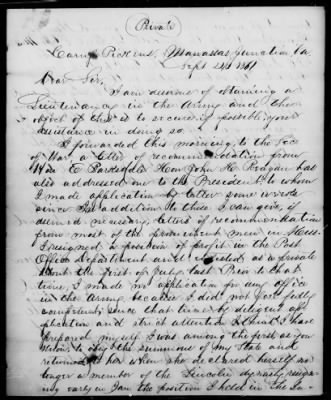 Private
Camp Pickens, Manassas Junction, Va.
Sept 24th 1861
Dear Sir,
I am desirous of obtaining a
Lieutenancy in the Army and the
object of this is to secure, if possible, your
assistance in doing so.
I forwarded this morning, to the Secy
of War, a letter of recommendation from
E. Barksdale. Hon John H. Reagan has
also addressed one to the President, to whom
I made application by letter some weeks
since. In addition to these I can give, if
deemed necessary, letters of recommendation
from most of the prominent men in Miss.
I resigned a position of profit in the Post
Office Department and enlisted as a private
about the first of July last. Prior to that
time, I made no application for any office
in the Army because I did not feel fully
competent; since that time by diligent ap-
plication and strict attention I think I have
prepared myself. I was among the first, as you
know, to obey the summons of my State and
returned to her when she declared herself no
longer a member of the Lincoln dynasty, resign-
ing early in Jan the position I held in the In-